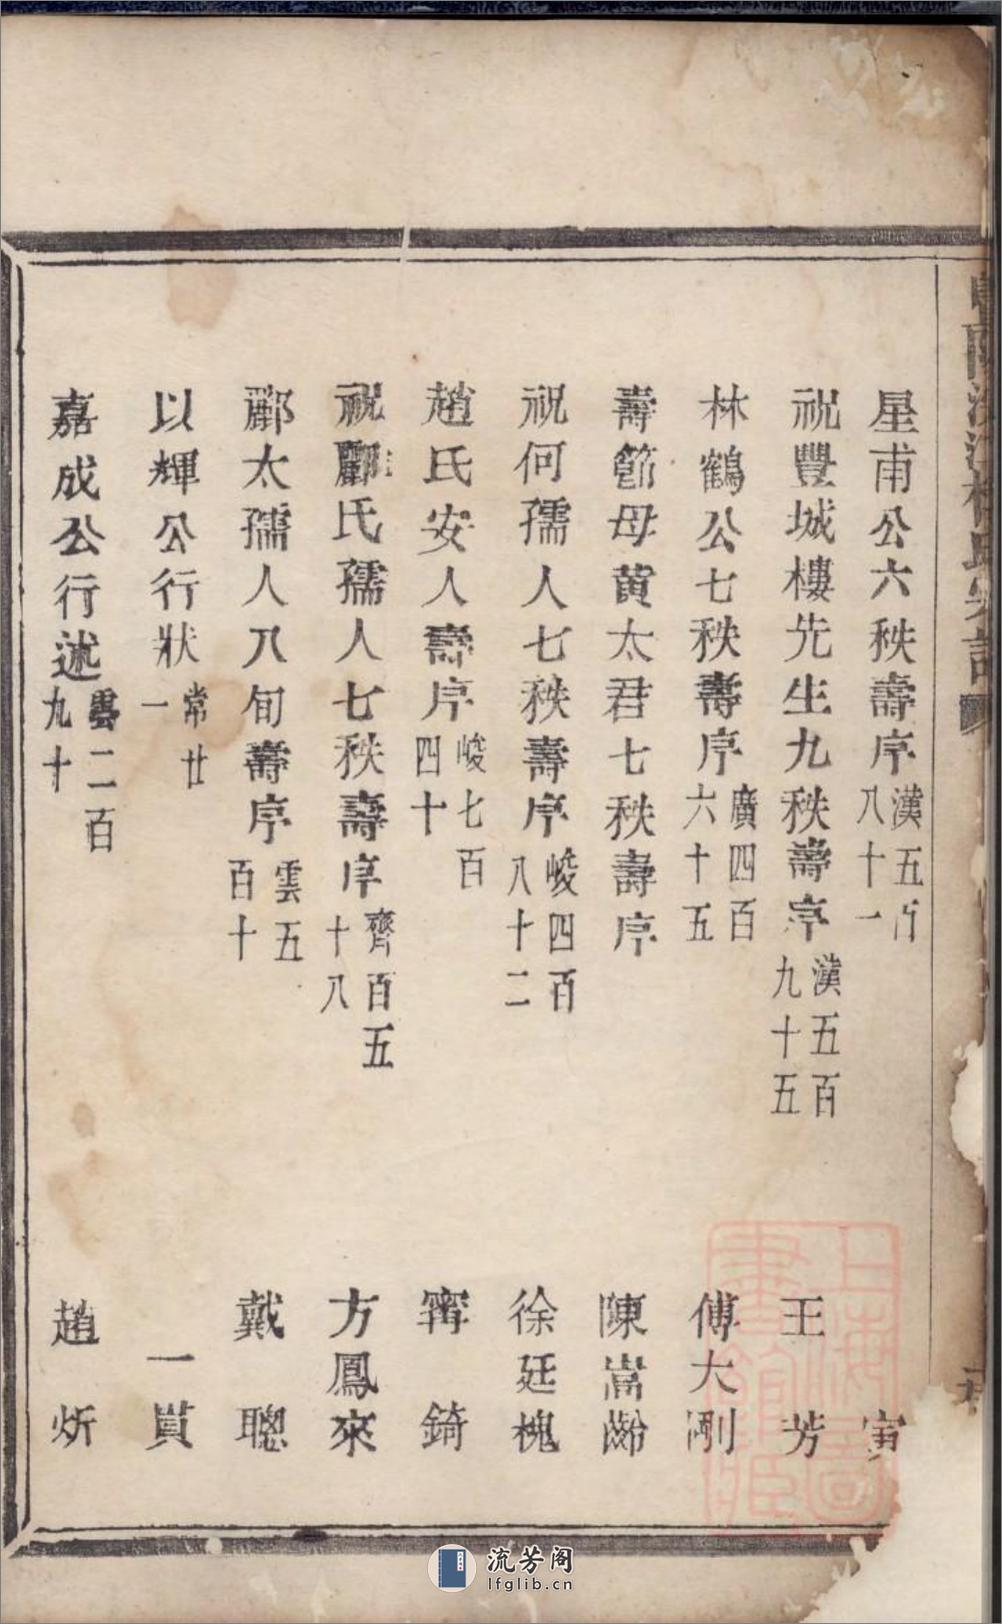 星甫公六秩壽序漢五百八十一 寅
祝豐城樓先生九秩壽序漢五百九十五 王芳
林鶴公七秩壽序廣四百六十五 傅大剛
壽節母黄太君七秩壽序 陳嵩齡
祝何孺人七秩壽序峻四百八十二 徐廷槐
趙氏安人壽序峻七百四十 甯錡
祝酈氏孺人七秩壽序齊百五十八 方鳳來
酈太孺人八旬壽序雲五百十 戴聰
以輝公行狀常廿一 一貫
嘉成公行述雲二百九十 趙炘
上海圖書館藏
流芳阁
lfglib.cn